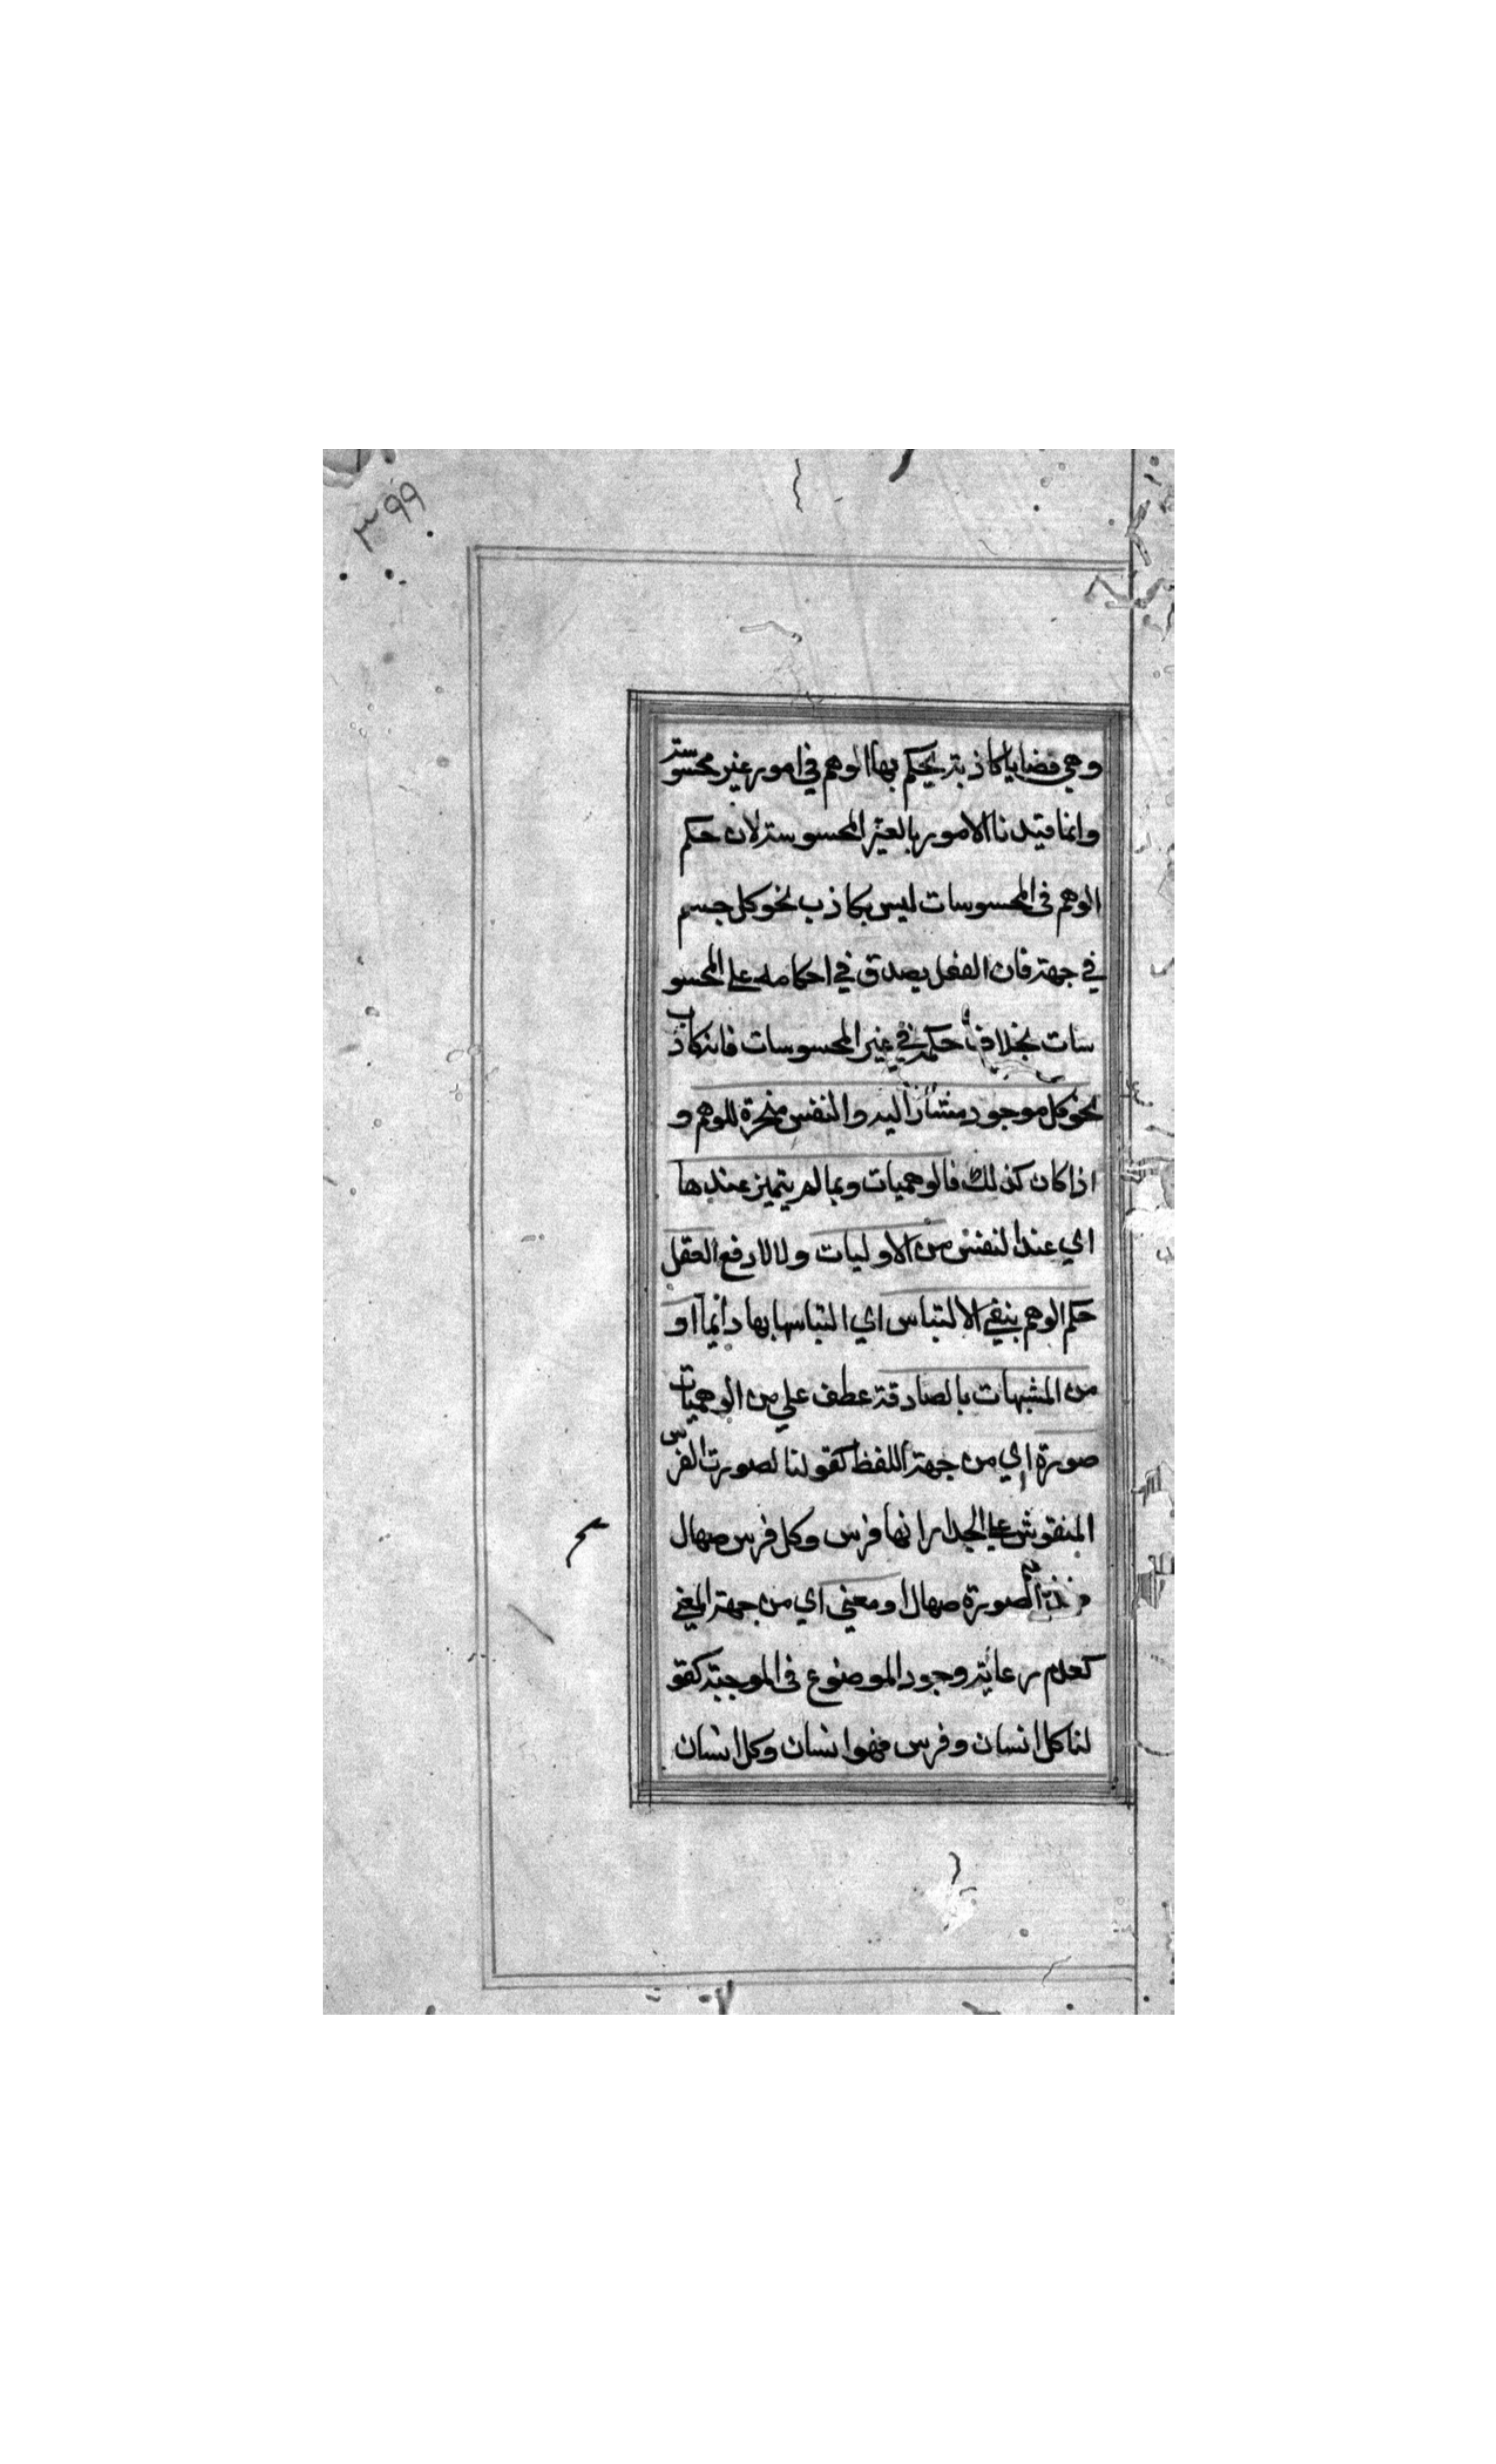 ٣٩٩
وهي قضايا كاذبة يحكم بها الوهم في امور غير محسوسة
وانما قيدنا الامور بالغير المحسوسة لان حكم
الوهم في المحسوسات ليس بكاذب نحو كل جسم
في جهة فان العقل يصدق في احكامه على المحسو
سات بخلاف حكمه في غير المحسوسات فانه كاذب
نحو كل موجود مشار اليه والنفس مسخرة للوهم و
اذا كان كذلك فالوهميات وبما لم يتميز عندها
اي عند النفس من الاوليات ولولا دفع العقل
حكم الوهم بنفي الالتباس اي التباسها بها دائما او
من المشبهات بالصادقة عطف على من الوهميات
صورة اي من جهة اللفظ كقولنا لصورة الفرس
المنقوش على الجدار انها فرس وكل فرس صهال
الصورة صهال او معنى اي من جهة المعنى
كعدم رعاية وجود الموضوع في الموجبة كقو
لنا كل انسان وفرس فهو انسان وكل انسان